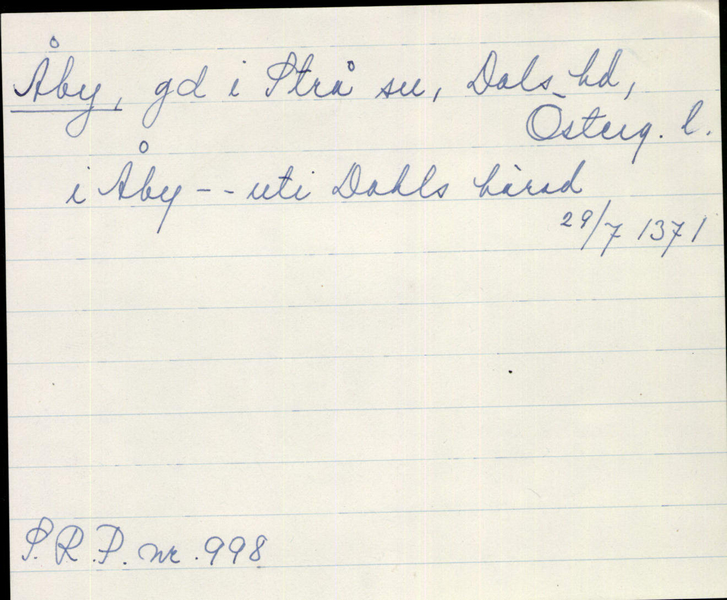 Åby, gd i Strå sn, Dals hd,
Österg. l.
i Åby -- uti Dahls härad
29/7 1371
S.R.P. nr. 998